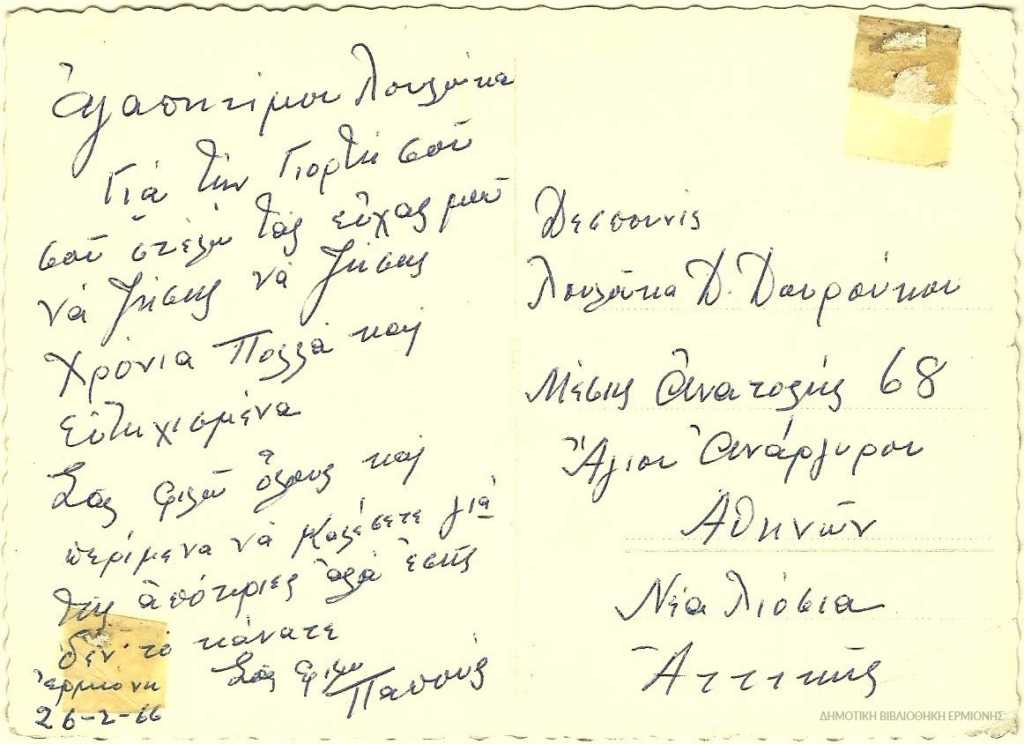 Ἀγαπητιμου Λουλούκα
Γιά τήν Γιορτή σοῦ
σοῦ στέλω τάς εὐχάς μοῦ
νά ζήσης νά ζήσης
χρόνια Πολλά καί
εὐτυχισμένα
Σᾶς φιλῶ ὅλους καί
περίμενα νά καλέσετε γιά
τίς ἀπόκριες ἀλά ἐσῆς
δέν τό κάνατε
Σᾶς φιλω
Παππούς
ἑρμιόνη
26-2-66
Δεσποινίς
Λουλούκα Δ. Δουρούκου
Μέσης Ἀνατολής 68
Ἅγιοι Ἀνάργυροι
Ἀθηνῶν
Νέα Λιόσια
Ἀττικῆς
ΔΗΜΟΤΙΚΗ ΒΙΒΛΙΟΘΗΚΗ ΕΡΜΙΟΝΗΣ